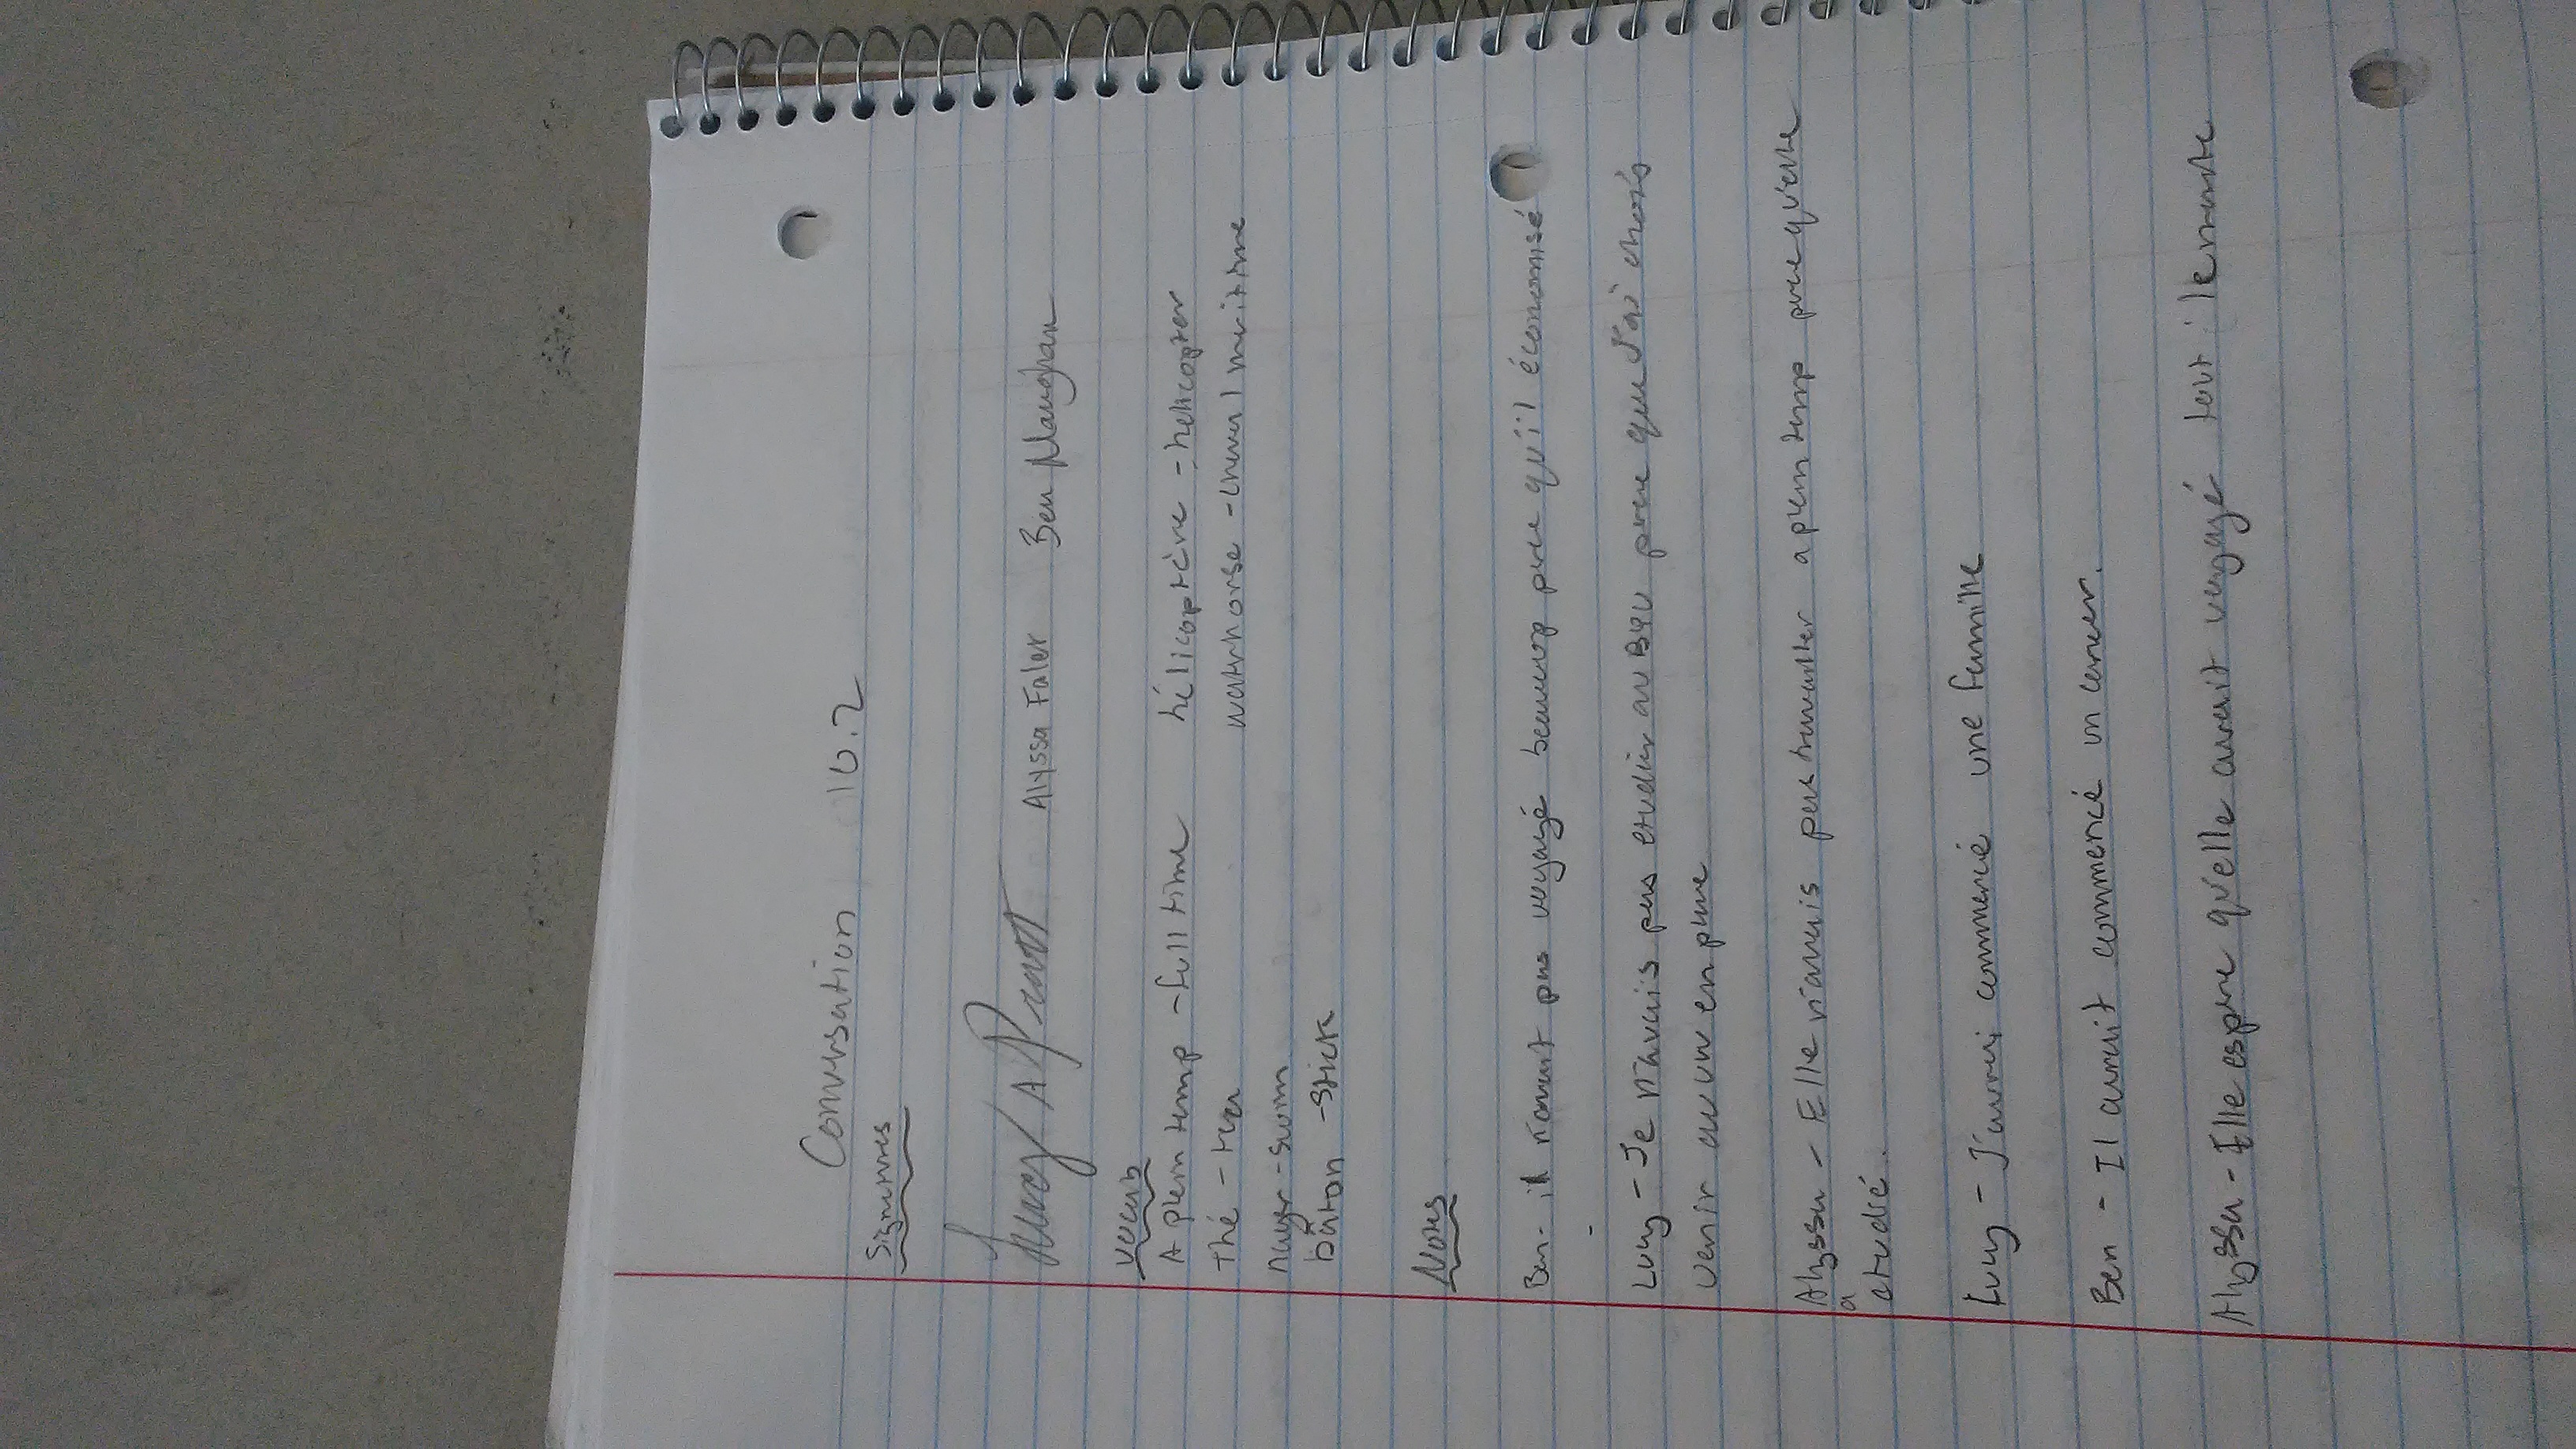 Conversation 10.2
Signatures
Lucy A Pratt Alyssa Faler Ben Maughan
Vocab
A plein temp - full time hélicoptère - helicopter
Thé - tea waterhorse - cheval meritime
nager - swim
bâton - stick
Notes
Ben - il n'avait pas voyagé beaucoup parce qu'il économisé
-
Lucy - Je n'avais pas etudier au BYU parce que J'ai choisi
venir au UW en place
Alyssa - Elle n'avais pas travailler a plein temp parce qu'elle
a
etudié.
Lucy - J'aurai commencé une famille
Ben - Il aurait commencé un career.
Alyssa - Elle espere qu'elle aurait voyagé tout le monde